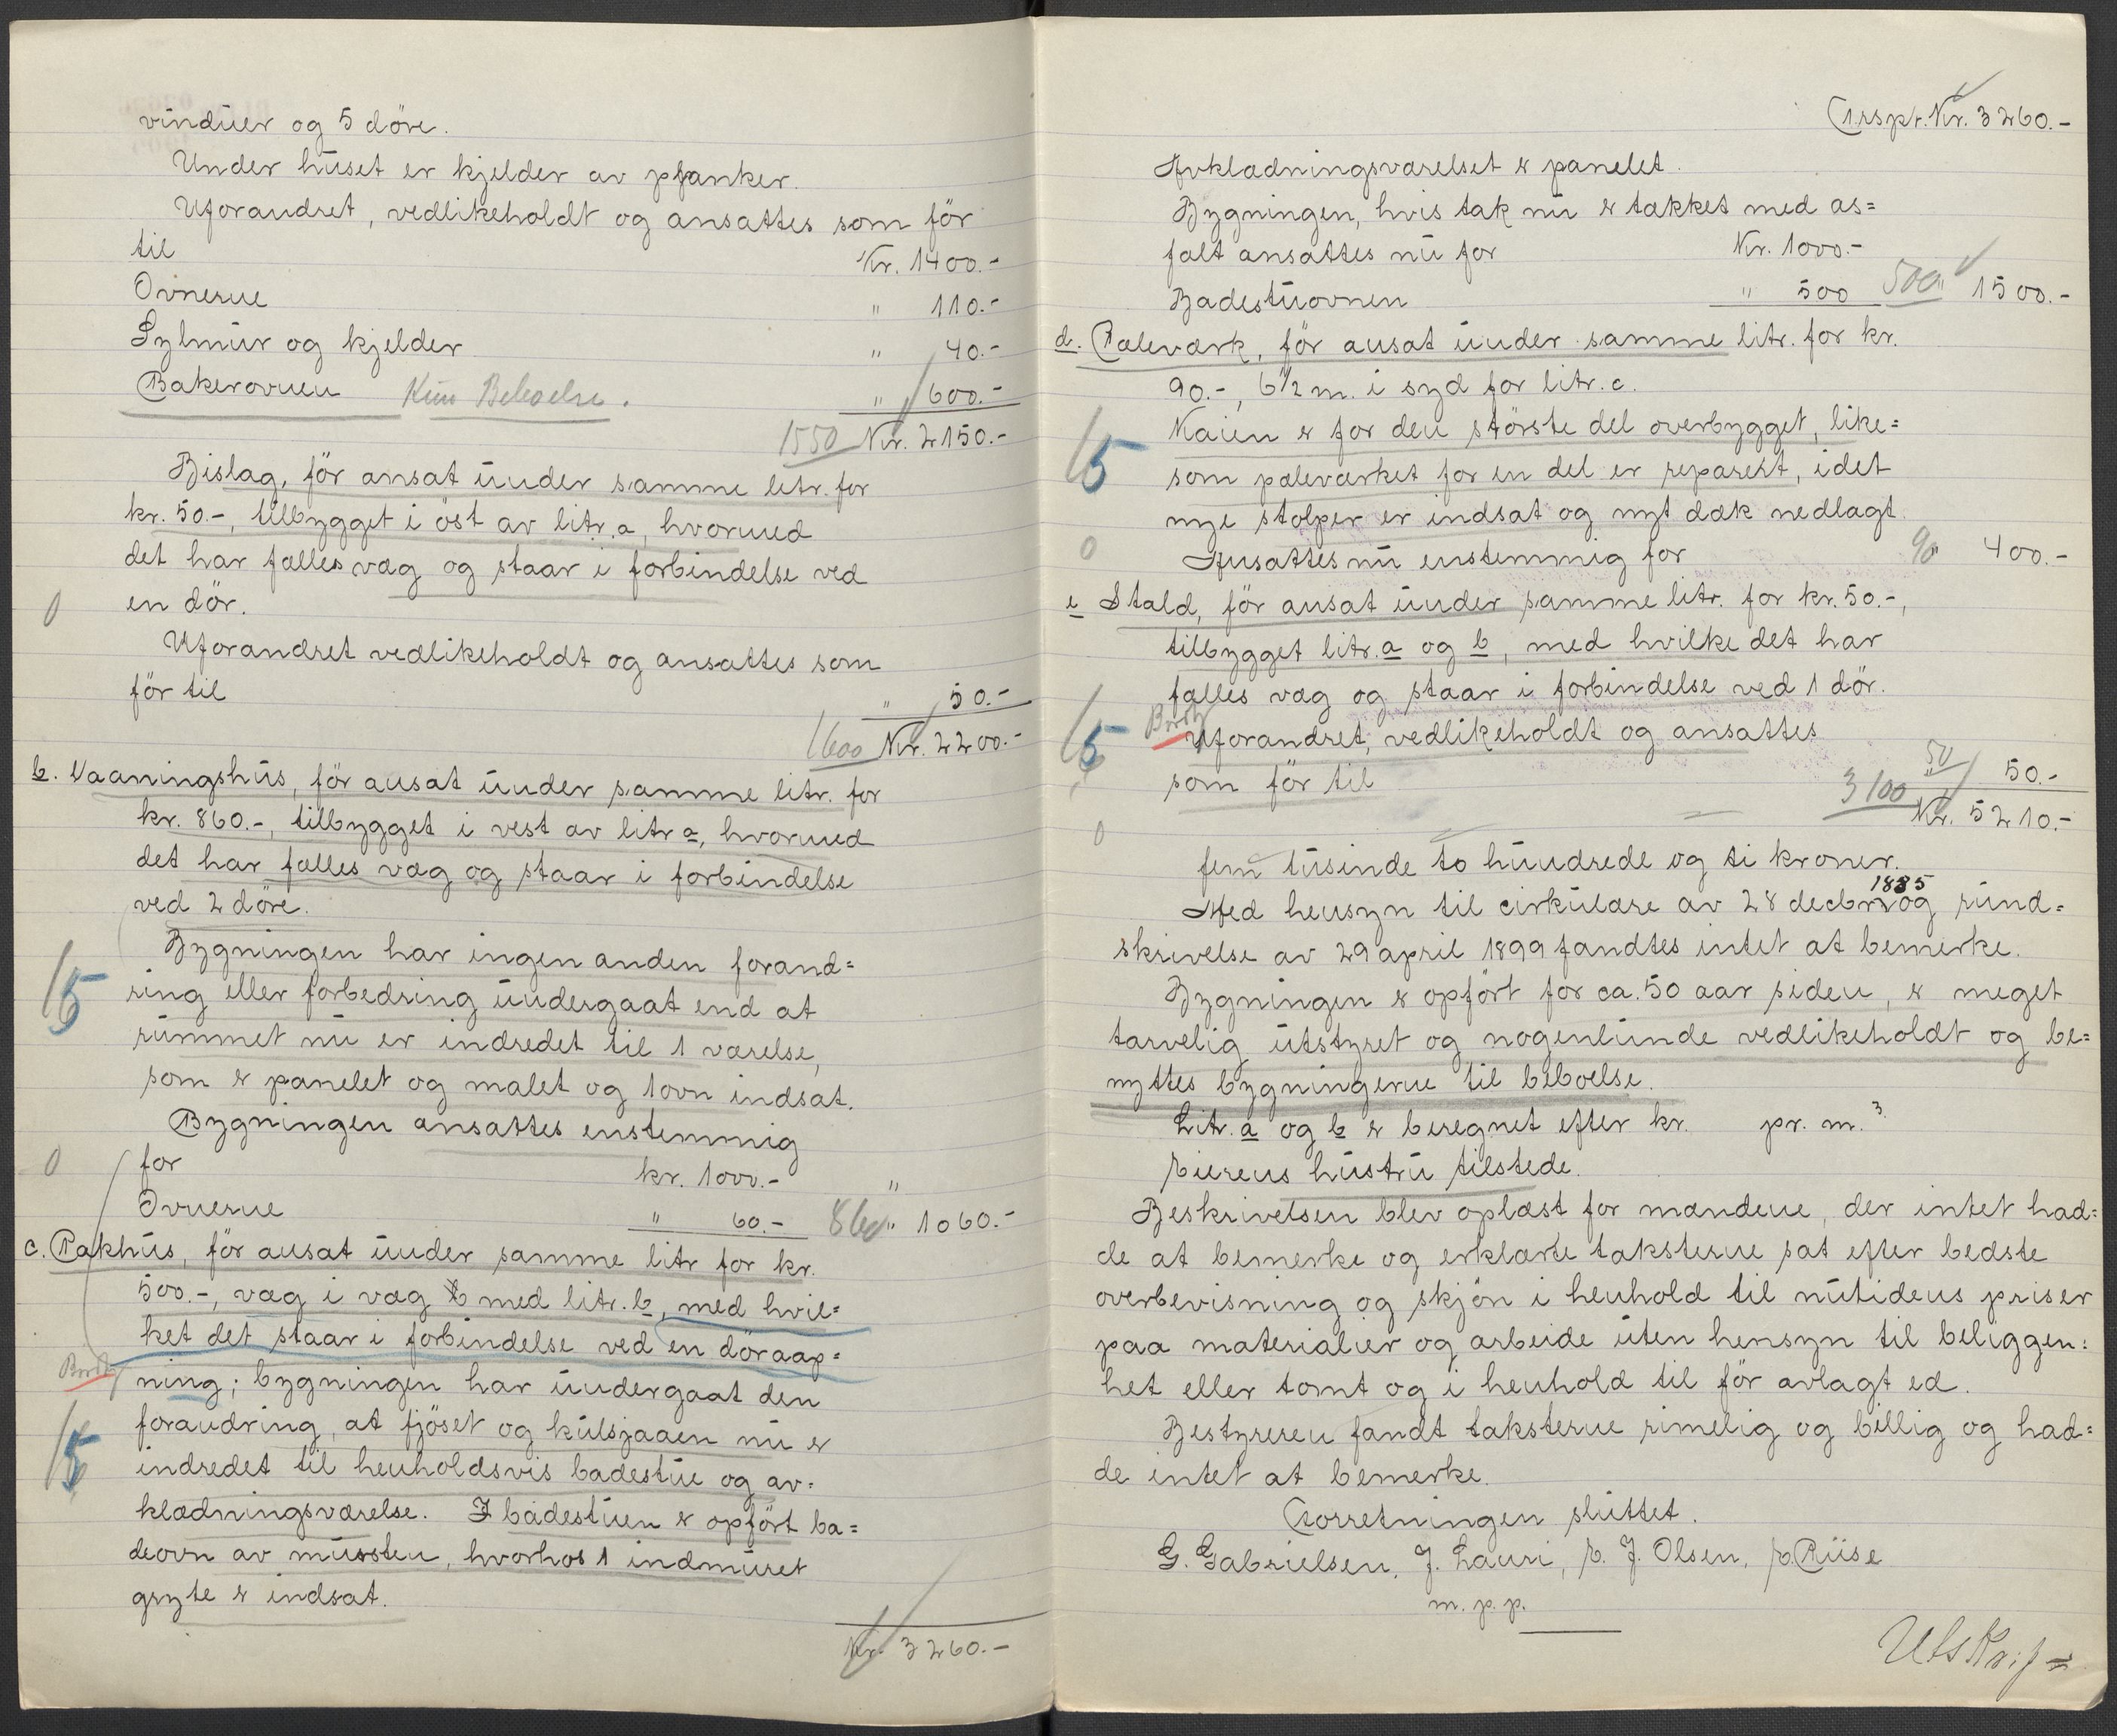 vinduer og 5 döre.
Under huset er kjelder av planker.
Uforandret, vedlikeholdt og ansættes som för
til Kr. 1400.-
Ovnerne " 110.-
Sylmur og kjelder " 40.-
Bakerovnen Kun Beboelse. " 600.-
1550 Kr. 2150.-
Bislag, för ansat under samme litr. for
kr. 50.-, tilbygget i öst av litr. a, hvormed
det har fælles væg og staar i forbindelse ved
en dör.
0
Uforandret vedlikeholdt og ansættes som
för til " 50.-
1600 Kr. 2200.-
b. Vaaningshus, för ansat under samme litr. for
kr. 860.-, tilbygget i vest av litr a, hvormed
det har fælles væg og staar i forbindelse
ved 2 döre.
Bygningen har ingen anden forand=
15 ring eller forbedring undergaat end at
rummet nu er indredet til 1 værelse,
som er panelet og malet og 1 ovn indsat.
Bygningen ansættes enstemmig
0 for kr. 1000.- "
Ovnerne " 60.- 860 " 1060.-
c. Pakhus, för ansat under samme litr for kr.
500.-, væg i væg med litr. b, med hvil=
ket det staar i forbindelse ved en döraap=
ning; bygningen har undergaat den
forandring, at fjöset og kulsjaaen nu er
15 indredet til henholdsvis badestue og av=
klædningsværelse. I badestuen er opfört ba=
deovn av mursten, hvorhos 1 indmuret
gryte er indsat.
Kr. 3260.-
Trspt. Kr. 3260.-
Avklædningsværelset er panelet.
Bygningen, hvis tak nu er tækket med as=
falt ansættes nu for Kr. 1000.-
Badestuovnen " 500 500 " 1500.-
d. Pæleværk, för ansat under samme litr. for kr.
90.-, 6 1/2 m. i syd for litr. c.
15 Kaien er for den störste del overbygget, like=
som pæleværket for en del er reparert, idet
nye stolper er indsat og nyt dæk nedlagt.
0 Ansættes nu enstemmig for 90 400.-
e Stald, för ansat under samme litr. for kr. 50.-,
tilbygget litr. a og b, med hvilke det har
fælles væg og staar i forbindelse ved 1 dör.
15 Uforandret, vedlikeholdt og ansættes
som för til 50 " 50.-
3100 Kr. 5210.-
0
fem tusinde to hundrede og ti kroner.
Med hensyn til cirkulære av 28 decbr. 1885 og rund=
skrivelse av 29 april 1899 fandtes intet at bemerke.
Bygningen er opfört for ca. 50 aar siden, er meget
tarvelig utstyret og nogenlunde vedlikeholdt og be=
nyttes bygningerne til beboelse.
Litr. a og b er beregnet efter kr. pr. m.3
Eierens hustru tilstede.
Beskrivelsen blev oplæst for mændene, der intet had=
de at bemerke og erklærte taksterne sat efter bedste
overbevisning og skjön i henhold til nutidens priser
paa materialier og arbeide uten hensyn til beliggen=
het eller tomt og i henhold til för avlagt ed.
Bestyreren fandt taksterne rimelig og billig og had=
de intet at bemerke.
Forretningen sluttet.
G. Gabrielsen, J. Lauri, E. J. Olsen, E. Riise
m. p. p.
Utskrift